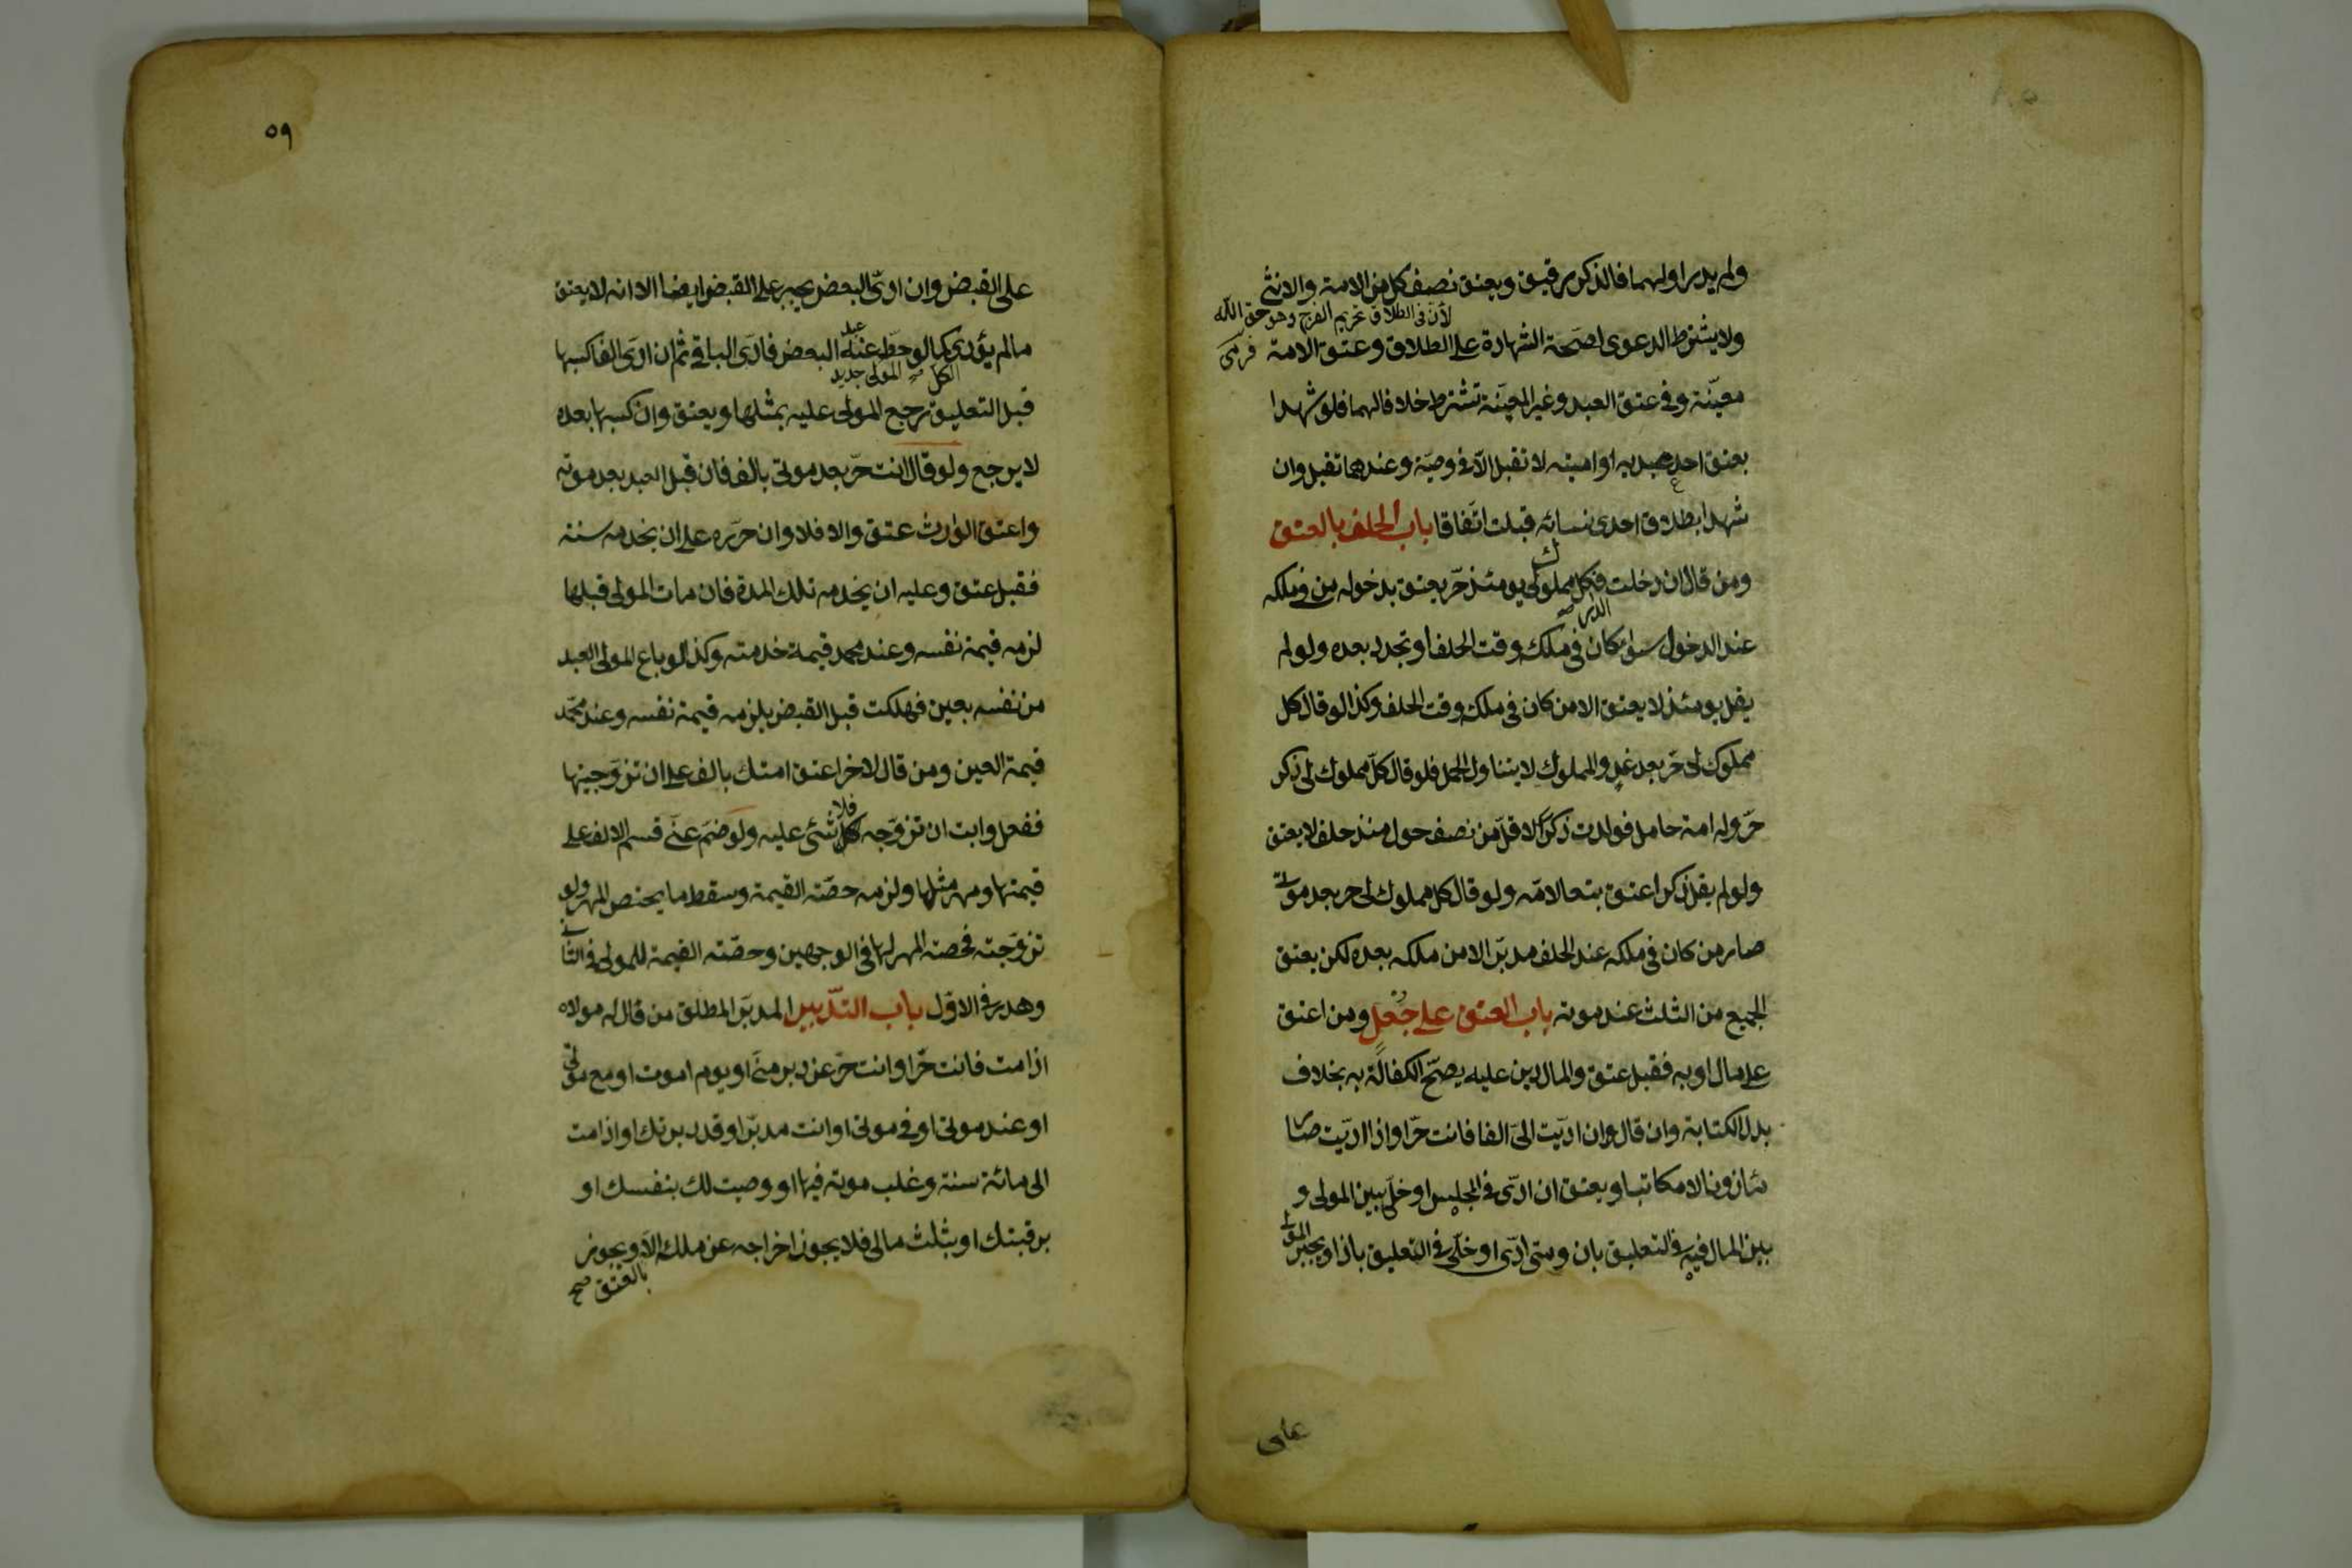 ولم يدر اولهما فالذكر رقيق ويعتق نصف كل من الامة والانثى
لأن في الطلاق تحريم الفرج وهو حق الله
ولا يشترط الدعوى لصحة الشهادة على الطلاق وعتق الامة
معينة وفي عتق العبد وغير المعينة تشترط خلافا لهما فلو شهدا
بعتق احد عبديه او امتيه لا تقبل الا في وصية وعندهما تقبل وان
شهدا بطلاق احدى نسائه قبلت اتفاقا باب الحلف بالعتق
ومن قال ان دخلت فكل مملوك لى يومئذ حر يعتق بدخوله من في ملكه
عند الدخول سواء كان في ملكه وقت الحلف او تجدد بعده ولو لم
يقل يومئذ لا يعتق الا من كان في ملكه وقت الحلف وكذا لو قال كل
مملوك لى حر بعد غد والمملوك لا يتناول الحمل فلو قال كل مملوك لى ذكر
حر وله امة حامل فولدت ذكرا لاقل من نصف حول منذ حلف لا يعتق
ولو لم يقل ذكر اعتق تبعا لامه ولو قال كل مملوك لى حر بعد موتى
صار من كان في ملكه عند الحلف مدبرا لا من ملكه بعده لكن يعتق
الجميع من الثلث عند موته باب العتق على جعل ومن اعتق
على مال او به فقبل عتق والمال دين عليه يصح الكفالة به بخلاف
بدل الكتابة وان قال وان اديت الى الفا فانت حر او اذا اديت صار
مأذونا لا مكاتبا ويعتق ان ادى في المجلس او خلى بين المولى و
بين المال فيه في التعليق بان ومتى ادى او خلى في التعليق باذا ويجبر المولى
على
٥٩
على القبض وان ادى البعض يجبر على القبض ايضا الا انه لا يعتق
ما لم يؤد الكل كما لو حط عنه البعض فادى الباقي ثم ان ادى الفا كسبها
قبل التعليق رجع المولى عليه بمثلها ويعتق وان كسبها بعده
لا يرجع ولو قال انت حر بعد موتى بالف فان قبل العبد بعد موته
واعتق الوارث عتق والا فلا وان حرره على ان يخدمه سنة
فقبل عتق وعليه ان يخدمه تلك المدة فان مات المولى قبلها
لزمه قيمة نفسه وعند محمد قيمة خدمته وكذا لو باع المولى العبد
من نفسه بعين فهلكت قبل القبض يلزمه قيمة نفسه وعند محمد
قيمة العين ومن قال لاخر اعتق امتك بالف على ان تزوجنيها
ففعل وابت ان تزوجه فلا شئ عليه ولو ضم عنى قسم الالف على
قيمتها ومهر مثلها ولزمه حصة القيمة وسقط ما يخص المهر ولو
تزوجته فحصة المهر لها في الوجهين وحصة القيمة للمولى في الثانى
وهدر في الاول باب التدبير المدبر المطلق من قال له مولاه
اذا مت فانت حر او انت حر عن دبر منى او يوم اموت او مع موتى
او عند موتى او في موتى او انت مدبر او قد دبرتك او اذا مت
الى مائة سنة وغلب موته فيها او وصيت لك بنفسك او
برقبتك او بثلث مالى فلا يجوز اخراجه عن ملكه الا ويجوز
بالعتق صح